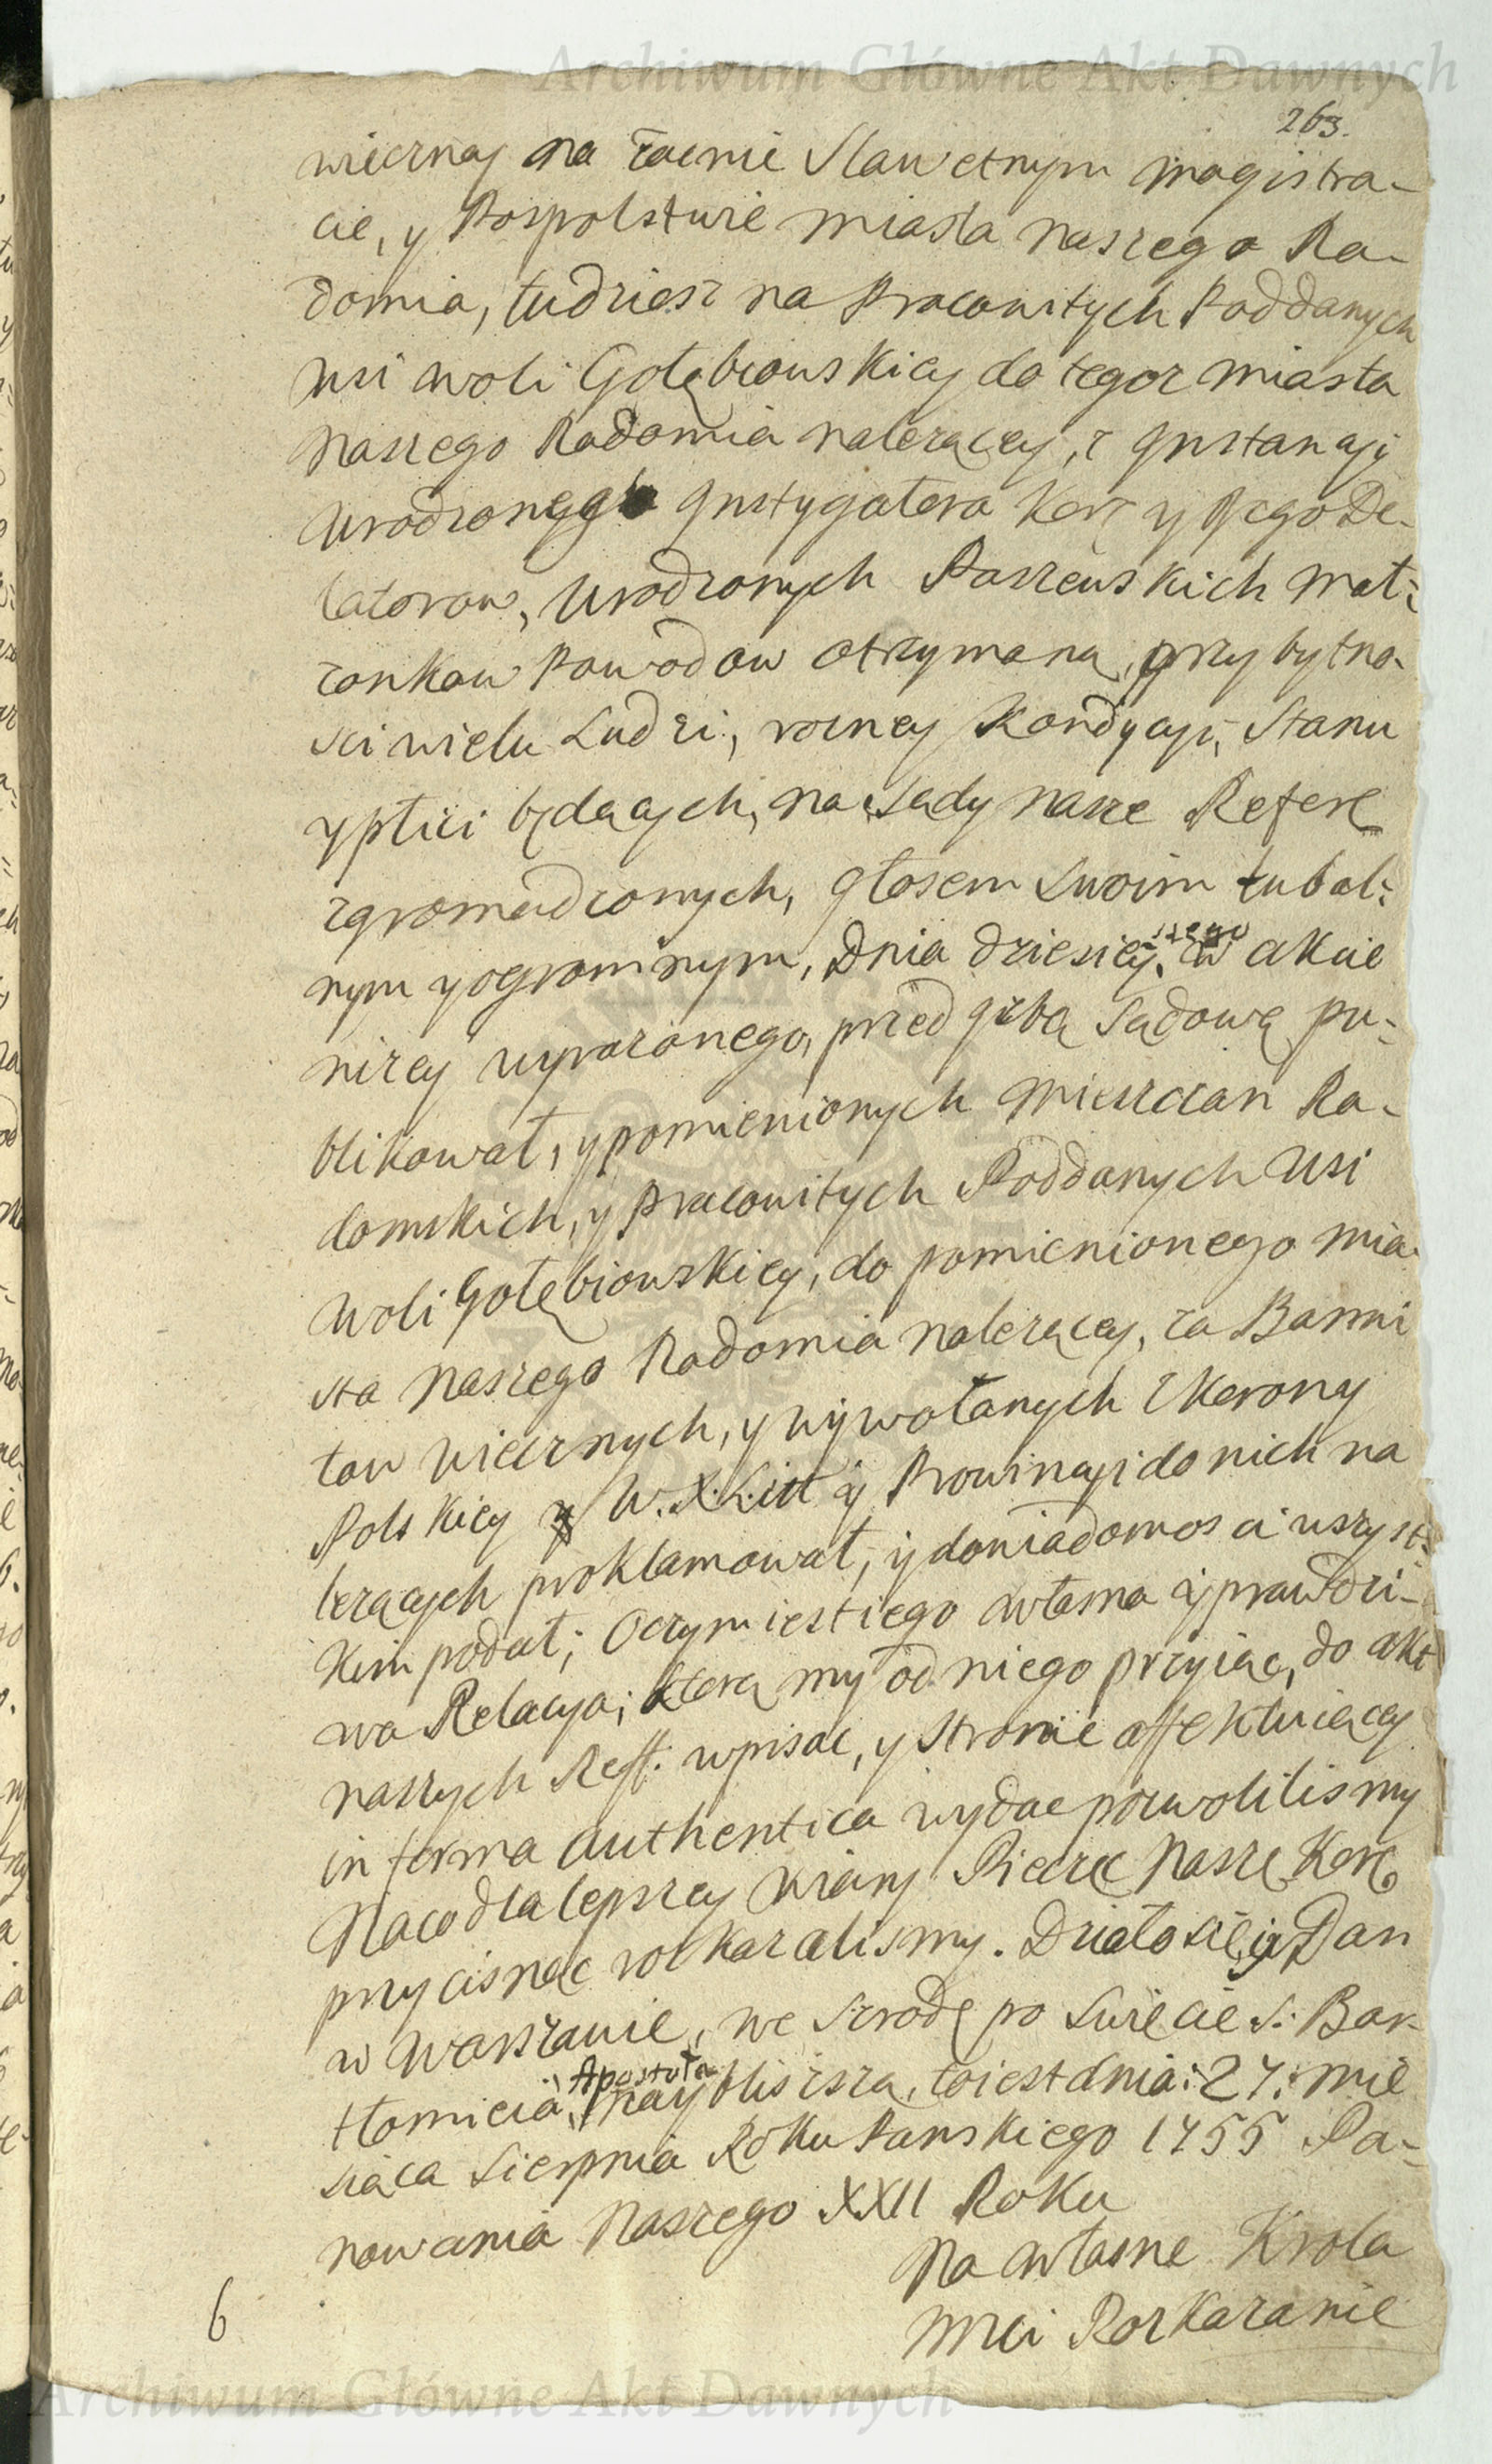 Archiwum Główne Akt Dawnych
263.
wieczney na całmie Sławetnym Magistra-
cie, y Pospolstwie Miasta naszego Ra-
domia, tudziesz na Pracowitych Poddanych
wsi Woli Gołębiowskiey do tegoz Miasta
naszego Radomia nalezącey, z Jnstancyi
Urodzonego Jnstygatora Kor: y Jego De-
latorow, Urodzonych Paszewskich Mał:
zonkow Powodow otrzymaną, przy bytno-
sci wielu Ludzi, rozney Kondycyi, Stanu
y płici będących, na Sądy nasze Refer:
zgromadzonych, głosem Swoim tubal:
nym y ogromnym, Dnia dziesiey:szego w akcie
nizey wyrazonego, przed Jzbą Sądową pu-
blikował, y pomienionych Mieszczan Ra-
domskich, y Pracowitych Poddanych Wsi
Woli Gołębiowskiey, do pomienionego Mia-
sta Naszego Radomia nalezącey, za Banni
tow wiecznych, y wywołanych z Korony
Polskiey y W. X. Litt: y Prowincyi do nich na
lezących proklamował, y do wiadomosci wszyst:
kim podał; Oczym iest iego własna y prawdzi-
wa Relacya; ktorą my od niego przyiąc, do akt
naszych Reff: wpisac, y Stronie affektuiącey
in forma authentica wydac pozwolilismy
Na co dla lepszey wiary Pieczęć Naszę Kor:
przycisnąc rozkazalismy. Działo się y Dan
w Warszawie, we Srodę po Swięcie S: Bar-
tłomieia Apostoła naybliszszą, to iest dnia: 27: Mie
siąca Sierpnia Roku Panskiego 1755 Pa-
nowania Naszego XXII Roku
Na własne Krola
Mci Rozkazanie
6
Archiwum Główne Akt Dawnych